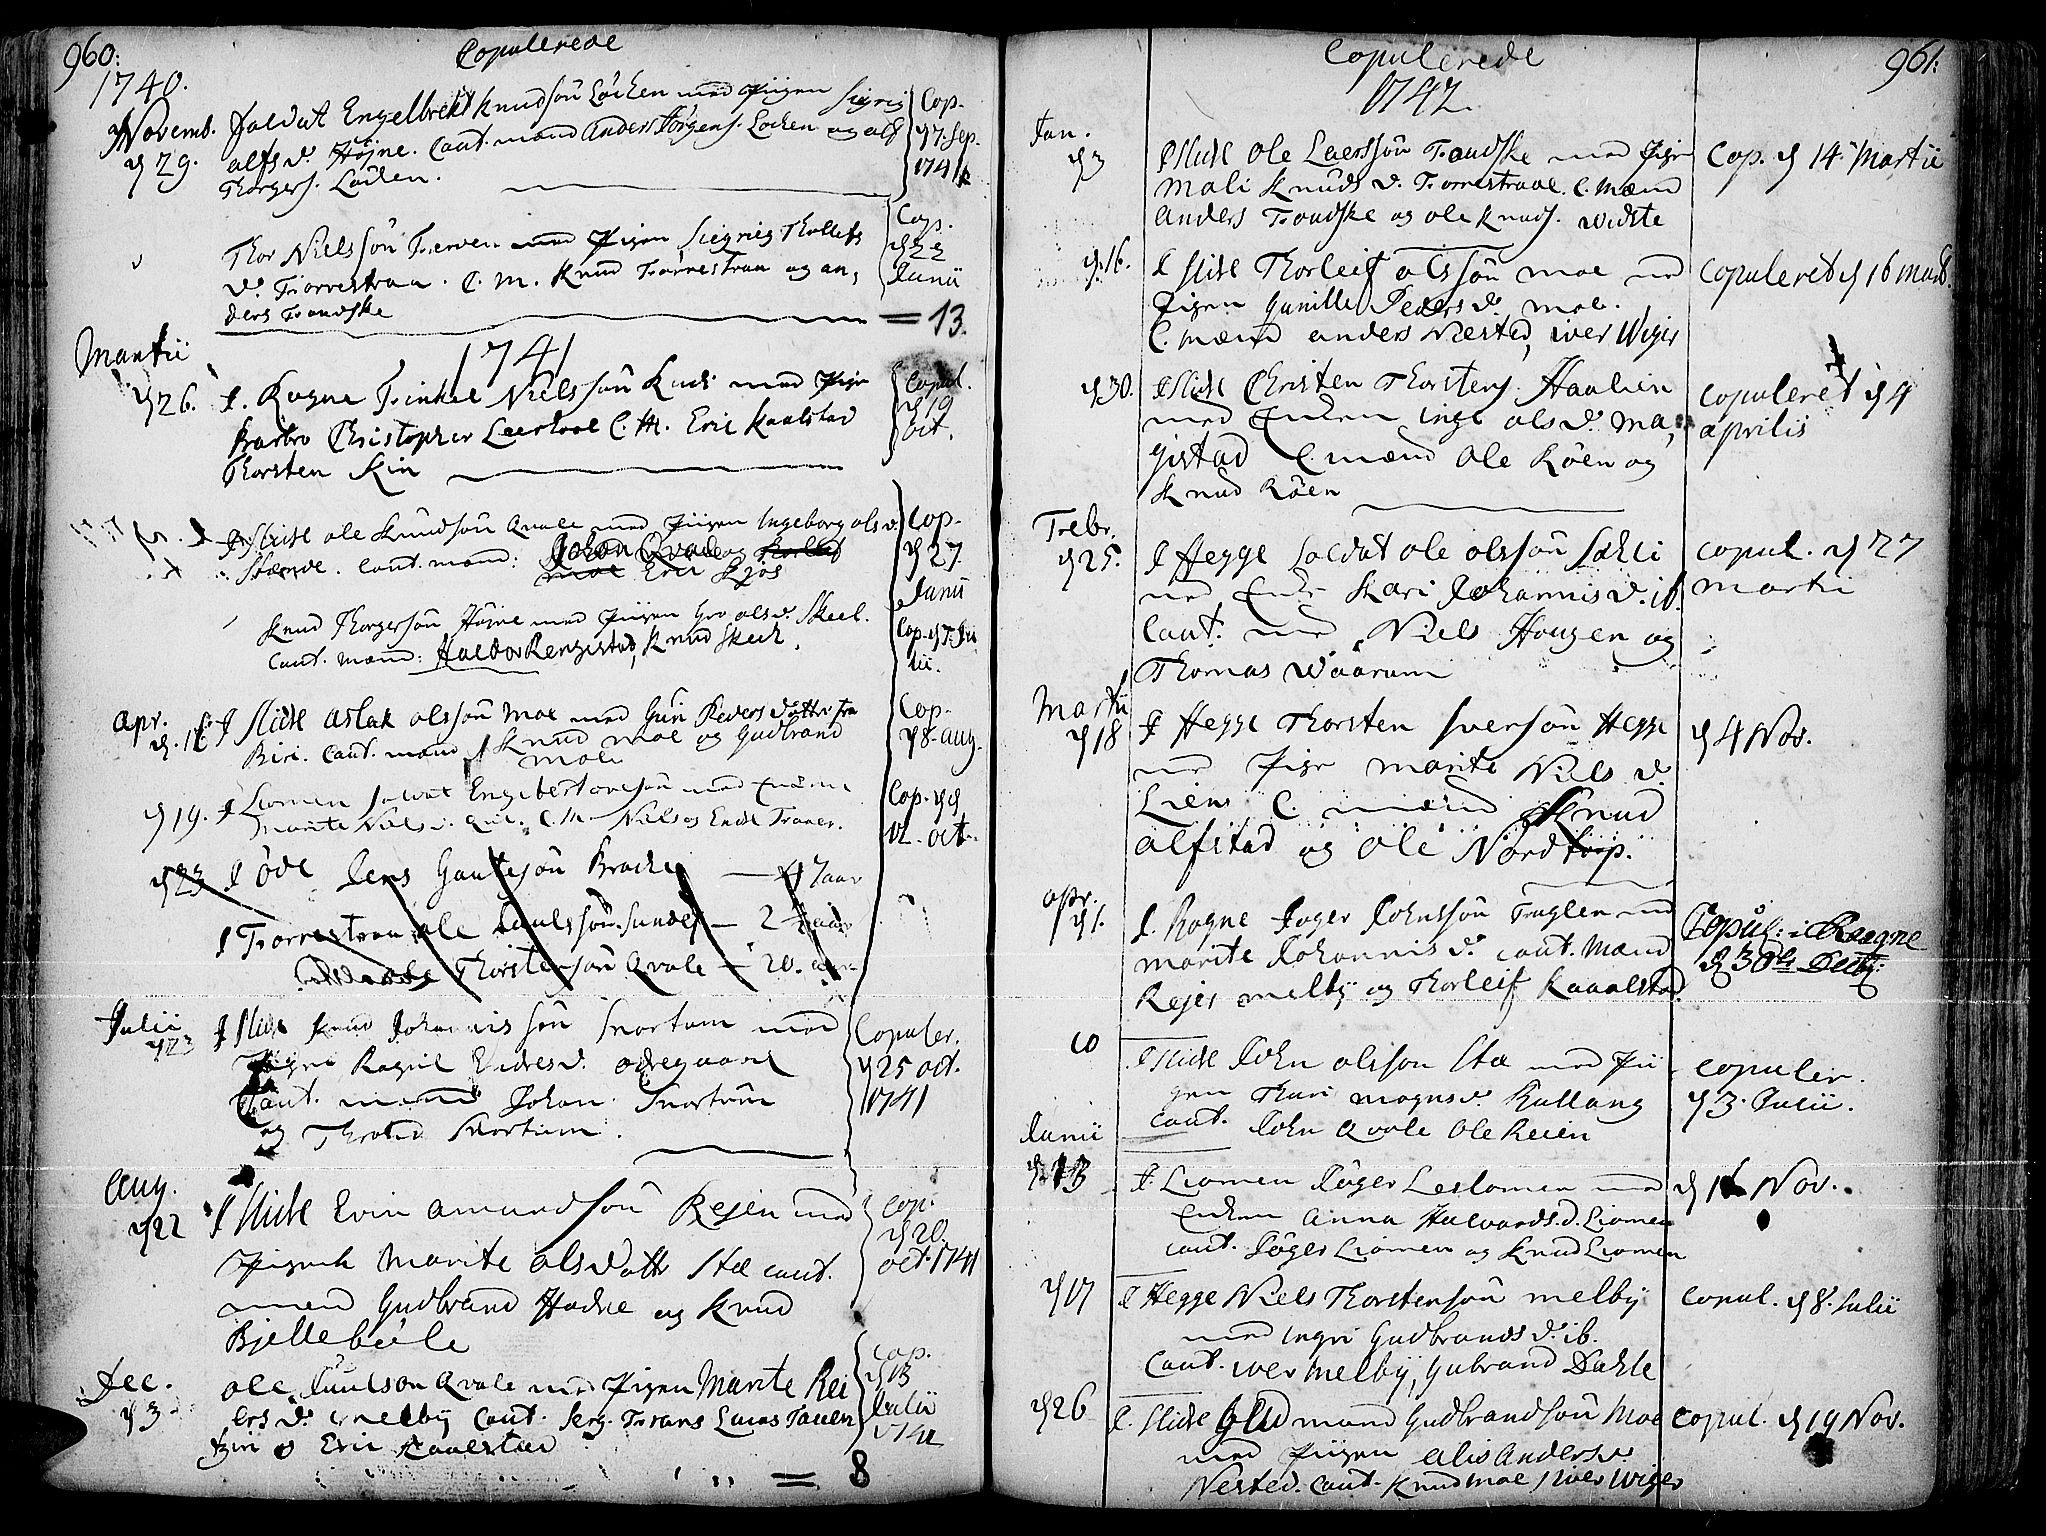 960:
Copulerede
1740.
Novemb. Soldat Engelbrekt Knudsøn Løken med Pigen Sigrig
d 29. alfs d. Højne. Caut. mænd Anders Jørgens. Løcken og alf
Thorgers. Løcken.
Cop.
d 7. Sep.
1741
Thor Nielssøn med Pigen Siegrig Thollefs
d. Tiørrestraa. C. M. Knud Tiørrestraa og an,
ders Trandske
Cop.
d 22
Junii
= 13.
1741
Martii
d 26. I. Rogne Trinkel Nielssøn med Pigen
Barbro Christopher C. M. Eric Kaalstad
Thorsten Kin
Copul.
d 19
Oct.
I Slidre ole Knudsøn Qvale med Pigen Ingeborg ols d.
Stænde. Caut. mænd: Johan Qvale og
moe Eric Kjøs
Cop.
d 27
Junii
Knud Thorgersøn Højne med Pigen Gro ols d. Skeel.
Caut. Mænd: Haldor Rengestad, Knud Skeel.
Cop. d 7. Ju
lii.
Apr.
d. 16 I Slidre Aslak olssøn Moe med Guri Peders datter fra
Biri. Caut. mænd Knud Moe og Gudbrand
Moe
Cop.
d 8. aug.
d 19. I Liomen Soldat Engebert med Enken
Marite Niels d. C. M. Niels og Endre
Cop. d
oct.
d 23 I Øde Jens Gautesøn Brache — 47 aar
I Tiørrestraa ole Paulssøn Sundef — 2 aar
Thorstensøn Qvale — 20. aar
Julii
d 23 I Slidre Knud Johannissøn Snortum med
Pigen Ragnil Endres d. Ødegaard
Caut. mænd Johan Snortum
og Thrond Snortum.
Copuler.
d 25 oct.
1741
Aug.
d 22 I Slidre Evin Amundsøn Rejen med
Pigen Marite olsdatter Stæ caut.
mænd Gudbrand og Knud
Bjellebøle
Cop.
d 20.
oct. 1741
Dec.
d 3. ole Paulson Qvale med Pigen Marite Rei
ers d. Melbÿ Caut. Serg. Frans Lucas
og Eric Kaalstad
Cop.
d 13
Julii
= 8
961:
Copulerede
1742.
Jan.
d 3 I Slidre Ole Laerssøn Trandske med Pigen
Mali Knuds d. Tiørrestraae. C. Mænd
Anders Trandske og ole Knuds. Widste
Cop. d 14. Martii
d. 16. I Slidre Thorleif olssøn Moe med
Pigen Gunille Peders d. Moe.
C. Mænd Anders Nested, iver Wiger
Copuleret d 16 Mart.
d 30. I Slidre Christen Thorstens. Haalien
med Enken inge ols d. Ma,
gistad C. mænd Ole Røen og
Knud Røen
Copuleret d 4
aprilis
Febr.
d 25. I Hegge Soldat ole olssøn Sæhli
med Enke Kari Johannis d. ib.
Caut. mænd Niels Hougen og
Thomas Waarum
Copul. d 27
Martii
Martii
d 18 I Hegge Thorsten Iversøn Hegge
med Pige Marite Niels d.
Liene C. mænd Knud
Alfstad og Ole Nordtorp.
d 4 Nov.
Apr.
d 1. I. Rogne Joger Johnssøn Fuglen med
Marite Johannis d. caut. Mænd
Rejer Melbÿ og Thorleif Kaaalstad.
Copul: i Raagne
d 30te Decbr:
10
I Slidre John olsson Stæ med Pi
gen Thuri Mogns d. Rullang
Caut. John Qvale Ole Reien
Copuler.
d 3. Julii.
Junii
d 13 I. Liomen Jøger Leslomen med
Enken Anna Halvards. d. Liomen
caut. Jøger Liomen og Knud Liomen
d 16 Nov.
d 17 I Hegge Niels Thorstensøn Melbÿ
med Ingri Gudbrands d. ib.
Caut. iver Melbÿ, Gubrand Dahle
Copul. d 8. Julii
d 26 I. Slidre Gudmand Gudbrandsøn Moe
med Pigen Alis Anders d.
Nested. Caut. Knud Moe, Iver Wiger
Copul. d 19 Nov.